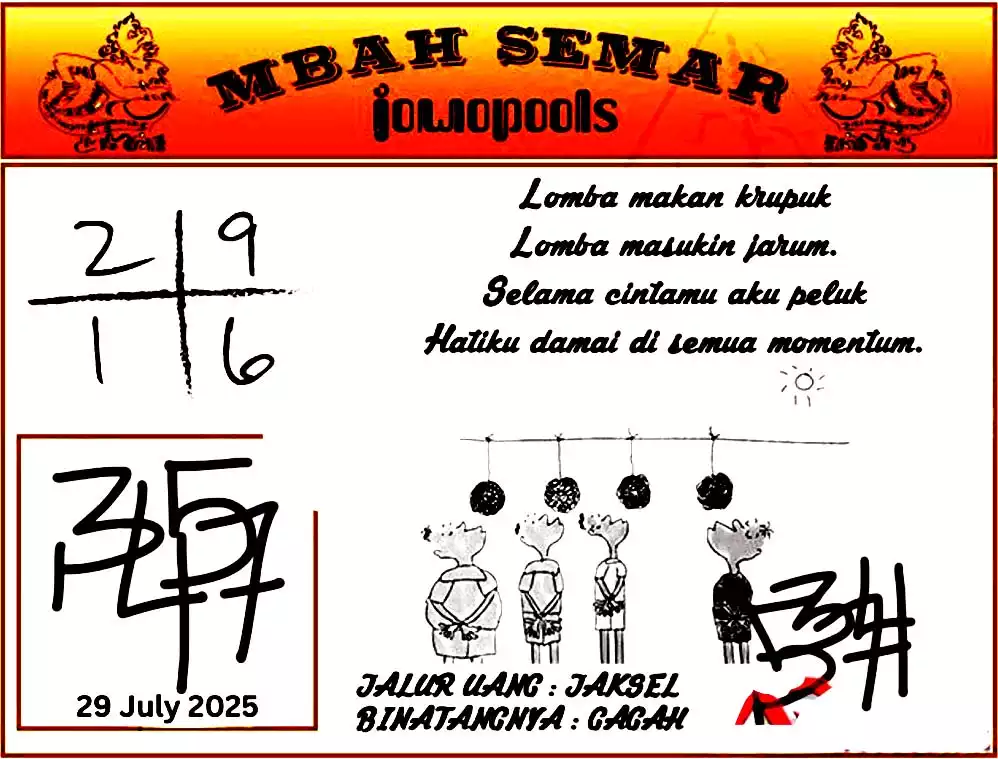 MBAH SEMAR
jowopools
Lomba makan krupuk
Lomba masukin jarum.
Selama cintamu aku peluk
Hatiku damai di semua momentum.
2 9
1 6
29 July 2025
JALUR UANG : JAKSEL
BINATANGNYA : GAGAH